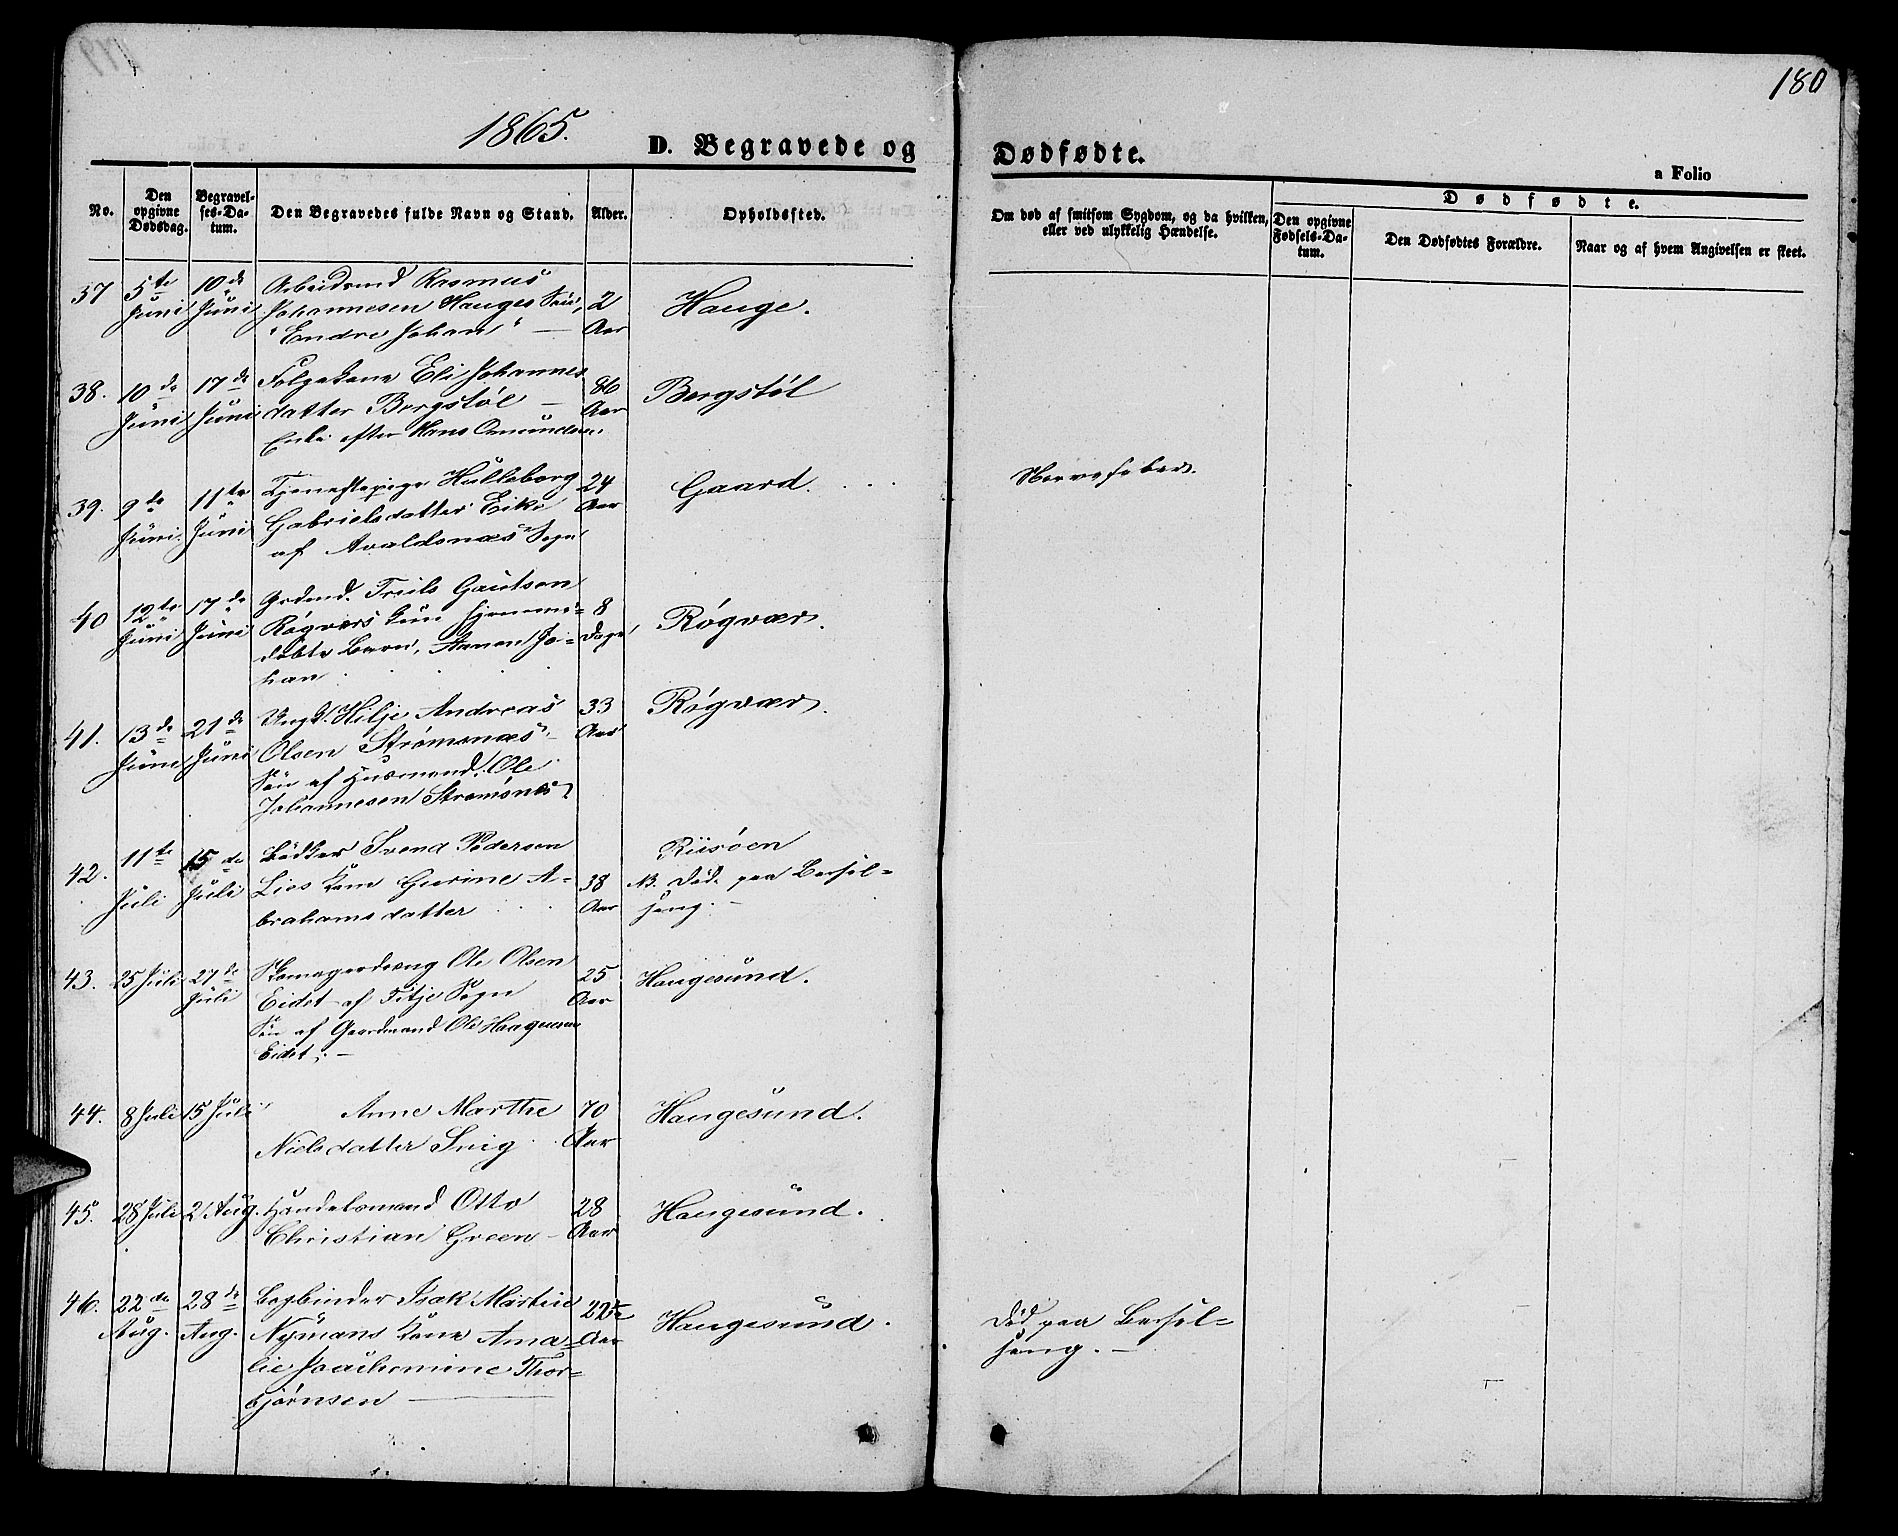 180
1865.
D. Begravede og Dødfødte.
a Folio
No.
Den opgivne Dødsdag.
Begravel-
ses-Da-
tum.
Den Begravedes fulde Navn og Stand.
Alder.
Opholdssted.
Om død af smitsom Sygdom, og da hvilken,
eller ved ulykkelig Hændelse.
Dødfødte.
Den opgivne
Fødsels-Da-
tum.
Den Dødfødtes Forældre.
Naar og af hvem Angivelsen er skeet.
37 5te Juni 10de Juni
Arbeidsmd Rasmus
Johannesen Hauges Søn,
"Endre Johan" —
2 Aar
Hauge.
38. 10de Juni 17de Juni
Folgekone Eli Johannes
datter Bergstøl —
Enke efter Hans Omundsen.
86 Aar
Bergstøl
39. 9de Juni 11te Juni
Tjenestepige Hulleborg
Gabrielsdatter Eike
af Avaldsnæs Sogn
24 Aar
Gaard.
Nervefeber.
40 12te Juni 17de Juni
Grdmd. Truls Gautsen
Røgværs kun hjemme-
døbte Barn, Aamen Jo-
han
8 Dage
Røgvær.
41. 13de Juni 21de Juni
Ungk. Hilje Andreas
Olsen Strømsnæs,
Søn af Husmand Ole
Johannesen Strømsnes
33 Aar
Røgvær.
42. 11te Juli 15de Juli
Bødker Svend Pedersen
Lies Kone Gurine A-
brahamsdatter
38 Aar
Riisøen
NB. Død paa Barsel-
seng. —
43. 25 Juli 27de Juli
Skomagerdreng Ole Olsen
Eidet af Fitje Sogn
Søn af Gaardmand Ole Haagensen
Eidet; —
25 Aar
Haugesund.
44. 8 Juli 15 Juli
Anne Marthe
Nielsdatter Snig
70 Aar
Haugesund.
45. 28 Juli 2 Aug.
Handelsmand Otto
Christian Green
28 Aar
Haugesund.
46. 22de Aug. 28de Aug.
Bogbinder Isak Martin
Nymans Kone Ama-
lie Joachomine Thor-
bjørnsen —
Aar
Haugesund.
Død paa Barsel-
seng. —